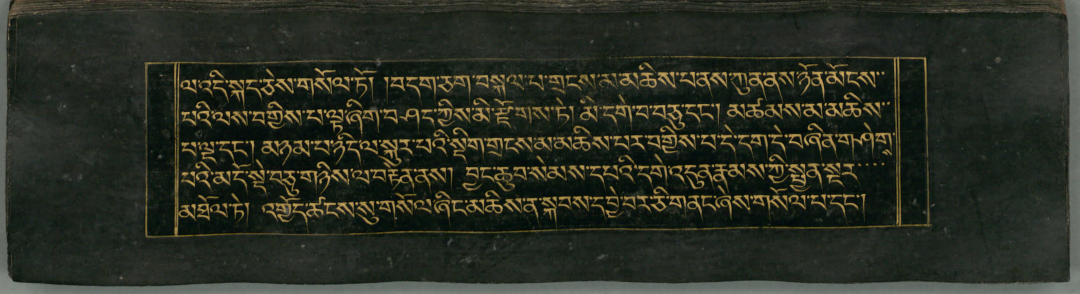 ལ་འདི་སྐད་ཅེས་གསོལ་ཏོ། །བདག་ཅག་བསྐལ་པ་གྲངས་མ་མཆིས་པ་ནས་ཀུན་ནས་ཉོན་མོངས་
པའི་ལས་བགྱིས་པ་ལྟ་ཞིག་བཤད་ཀྱིས་མི་རྫོགས་ཏེ། མི་དགེ་བ་བཅུ་དང་། མཚམས་མ་མཆིས་
པ་ལྔ་དང་། མཉམ་པ་ཉིད་ལ་སྐུར་པའི་སྡིག་གྲངས་མ་མཆིས་པར་བགྱིས་པ་དེ་དག་དེ་བཞིན་གཤེགས་
པའི་མདོ་སྡེ་བཅུ་གཉིས་ལ་བརྟེན་ནས། བྱང་ཆུབ་སེམས་དཔའི་དགེ་འདུན་རྣམས་ཀྱི་སྤྱན་སྔར་
མཐོལ་ཏེ། འགྱོད་ཚངས་སུ་གསོལ་ཞིང་མཆིས་ན་སྐབས་དབྱེ་བར་ཅི་གནང་ཞེས་གསོལ་པ་དང་།